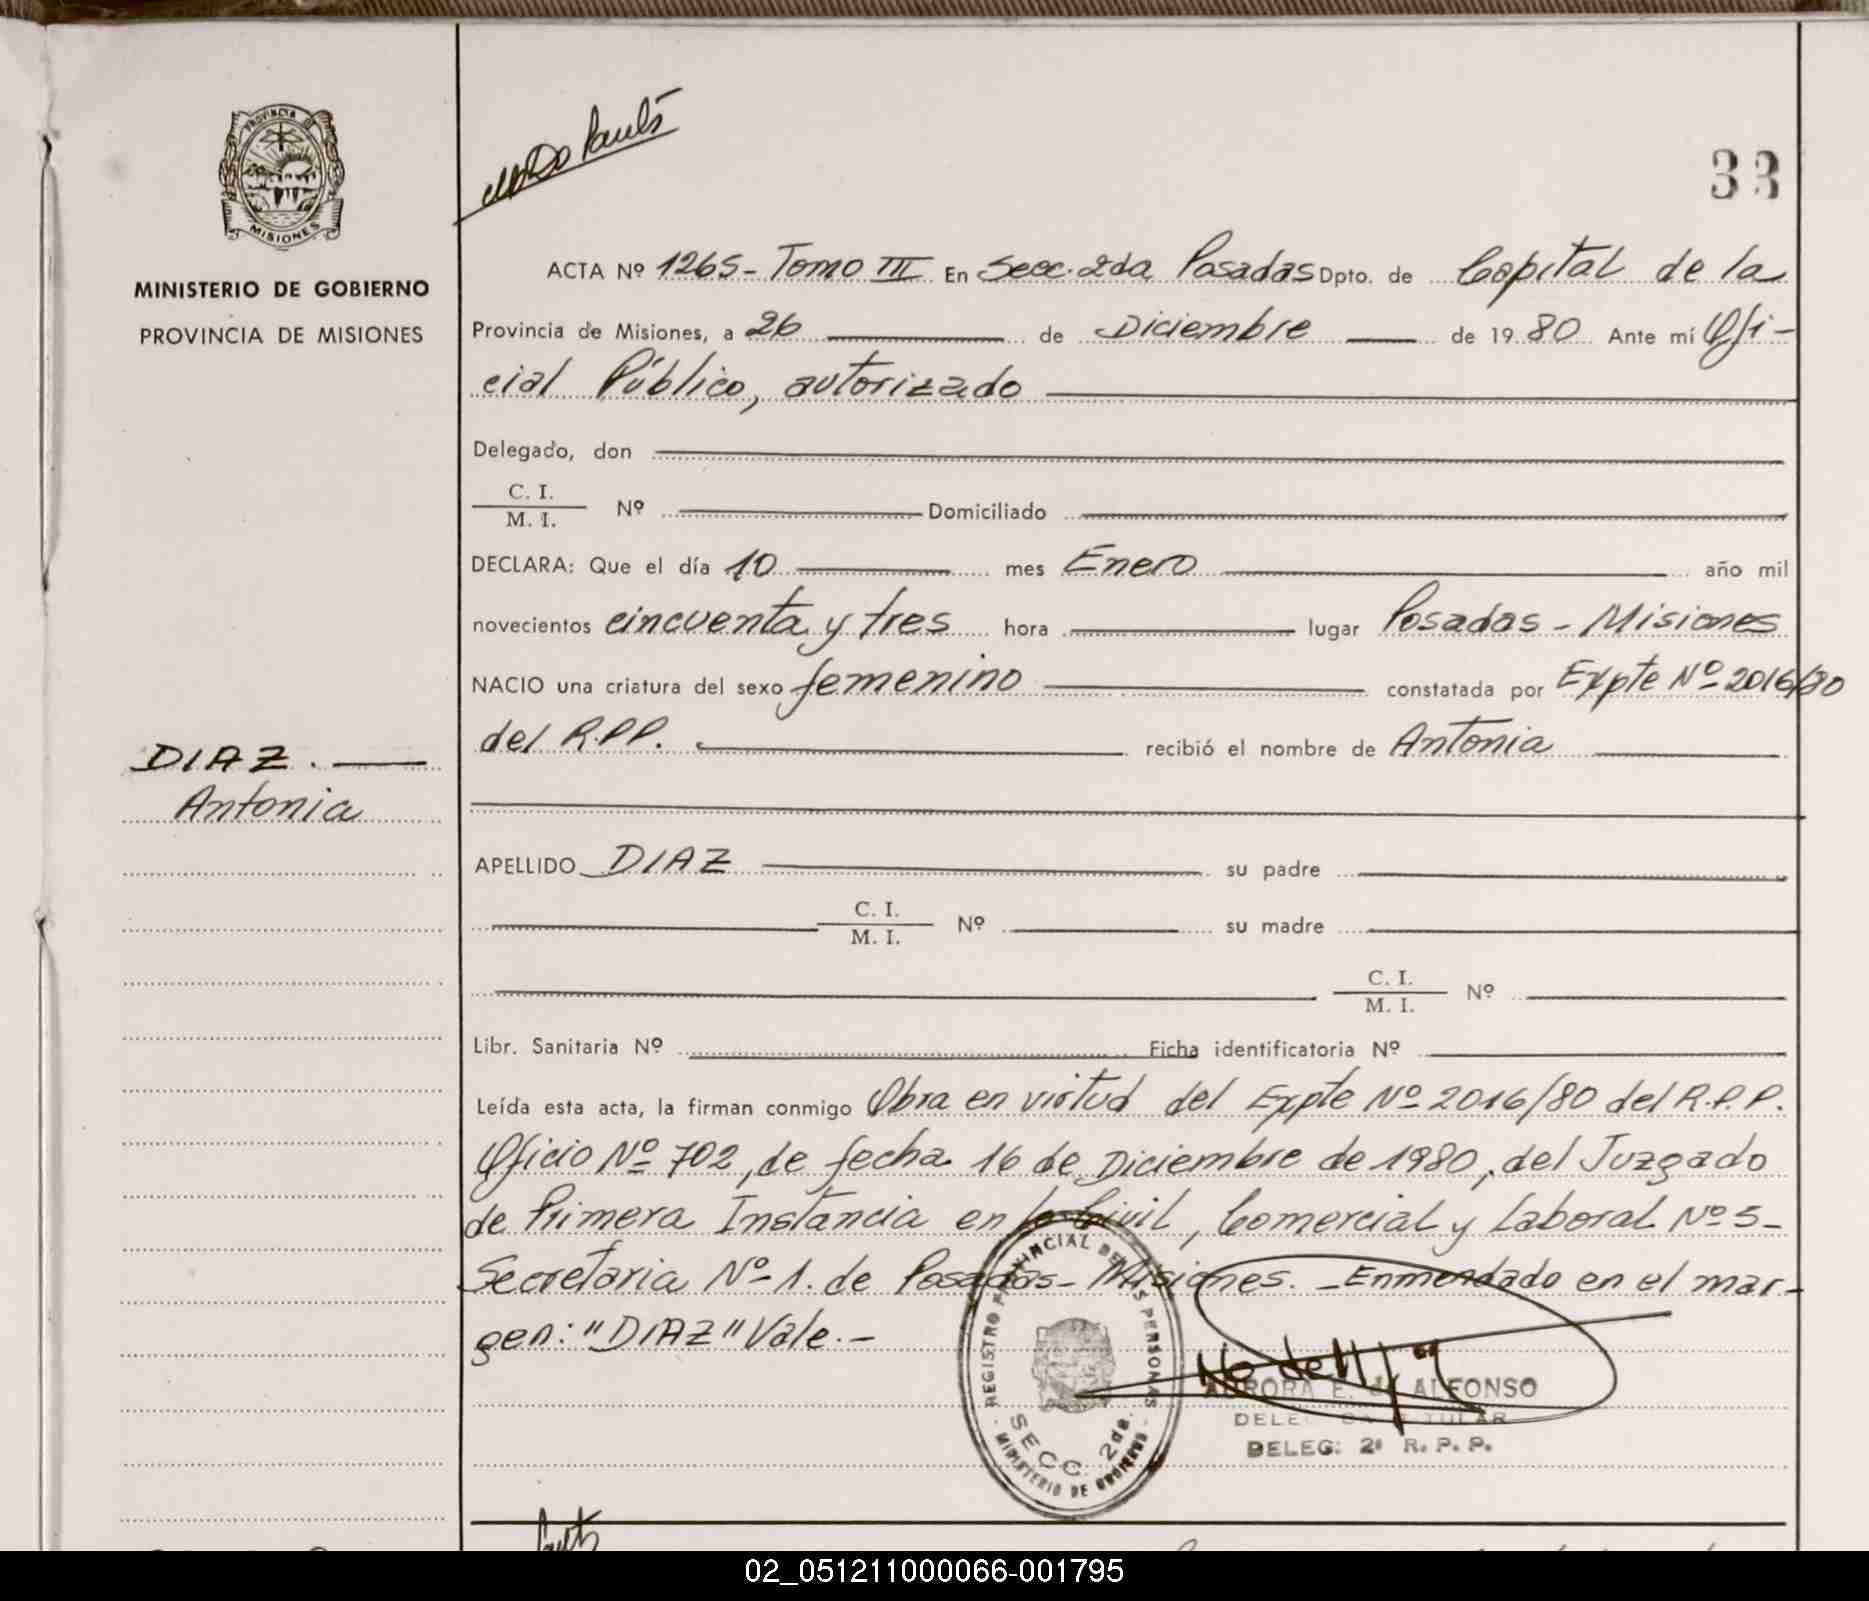 33
PROVINCIA DE
MISIONES
MINISTERIO DE GOBIERNO
PROVINCIA DE MISIONES
ACTA Nº 1265- Tomo III En Secc. 2da Posadas Dpto. de Capital de la
Provincia de Misiones, a 26 de Diciembre de 1980 Ante mí Ofi-
cial Público, autorizado
Delegado, don
C. I.
M. I.
Nº Domiciliado
DECLARA: Que el día 10 mes Enero año mil
novecientos cincuenta y tres hora lugar Posadas - Misiones
NACIO una criatura del sexo femenino constatada por Expte Nº 2016/80
del R.P.P. recibió el nombre de Antonia
DIAZ.
Antonia
APELLIDO DIAZ su padre
C. I.
M. I.
Nº su madre
C. I.
M. I.
Nº
Libr. Sanitaria Nº Ficha identificatoria Nº
Leída esta acta, la firman conmigo Obra en virtud del Expte Nº 2016/80 del R.P.P.
Oficio Nº 702, de fecha 16 de Diciembre de 1980, del Juzgado
de Primera Instancia en lo Civil, Comercial y Laboral Nº 5-
Secretaria Nº 1. de Posadas- Misiones. -Enmendado en el mar-
gen: "DIAZ" Vale.-
REGISTRO PROVINCIAL DE LAS PERSONAS
SECC. 2da.
MINISTERIO DE GOBIERNO
AURORA E. de ALFONSO
DELEGADA TITULAR
DELEG: 2ª R. P. P.
02_051211000066-001795